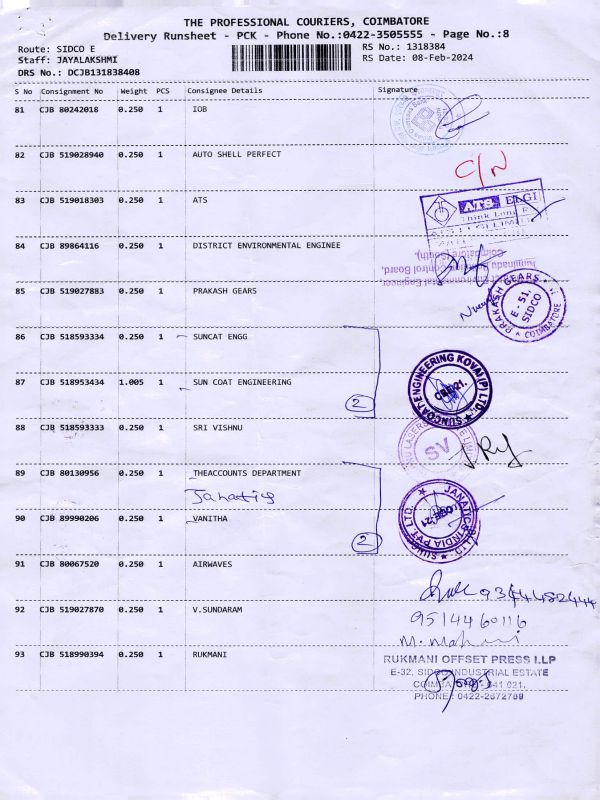 THE PROFESSIONAL COURIERS, COIMBATORE
Delivery Runsheet - PCK - Phone No.:0422-3505555 - Page No.:8
Route: SIDCO E
RS No.: 1318384
Staff: JAYALAKSHMI
RS Date: 08-Feb-2024
DRS No.: DCJB131838408
S No Consignment No Weight PCS Consignee Details Signature
81 CJB 80242018 0.250 1 IOB
82 CJB 519028940 0.250 1 AUTO SHELL PERFECT
C/N
83 CJB 519018303 0.250 1 ATS
ATS ELGI
84 CJB 89864116 0.250 1 DISTRICT ENVIRONMENTAL ENGINEE
85 CJB 519027883 0.250 1 PRAKASH GEARS
PRAKASH GEARS
E-51, SIDCO
COIMBATORE
86 CJB 518593334 0.250 1 SUNCAT ENGG
87 CJB 518953434 1.005 1 SUN COAT ENGINEERING
2
SUNCOAT ENGINEERING KOVAI (P) LTD.,
CBE-21.
88 CJB 518593333 0.250 1 SRI VISHNU
SV
89 CJB 80130956 0.250 1 THEACCOUNTS DEPARTMENT
Janatics
JANATICS INDIA PVT. LTD.
90 CJB 89990206 0.250 1 VANITHA
2
91 CJB 80067520 0.250 1 AIRWAVES
92 CJB 519027870 0.250 1 V.SUNDARAM
9514460116
93 CJB 518990394 0.250 1 RUKMANI
RUKMANI OFFSET PRESS LLP
E-32, SIDCO INDUSTRIAL ESTATE
COIMBATORE - 641 021.
PHONE: 0422-2672769